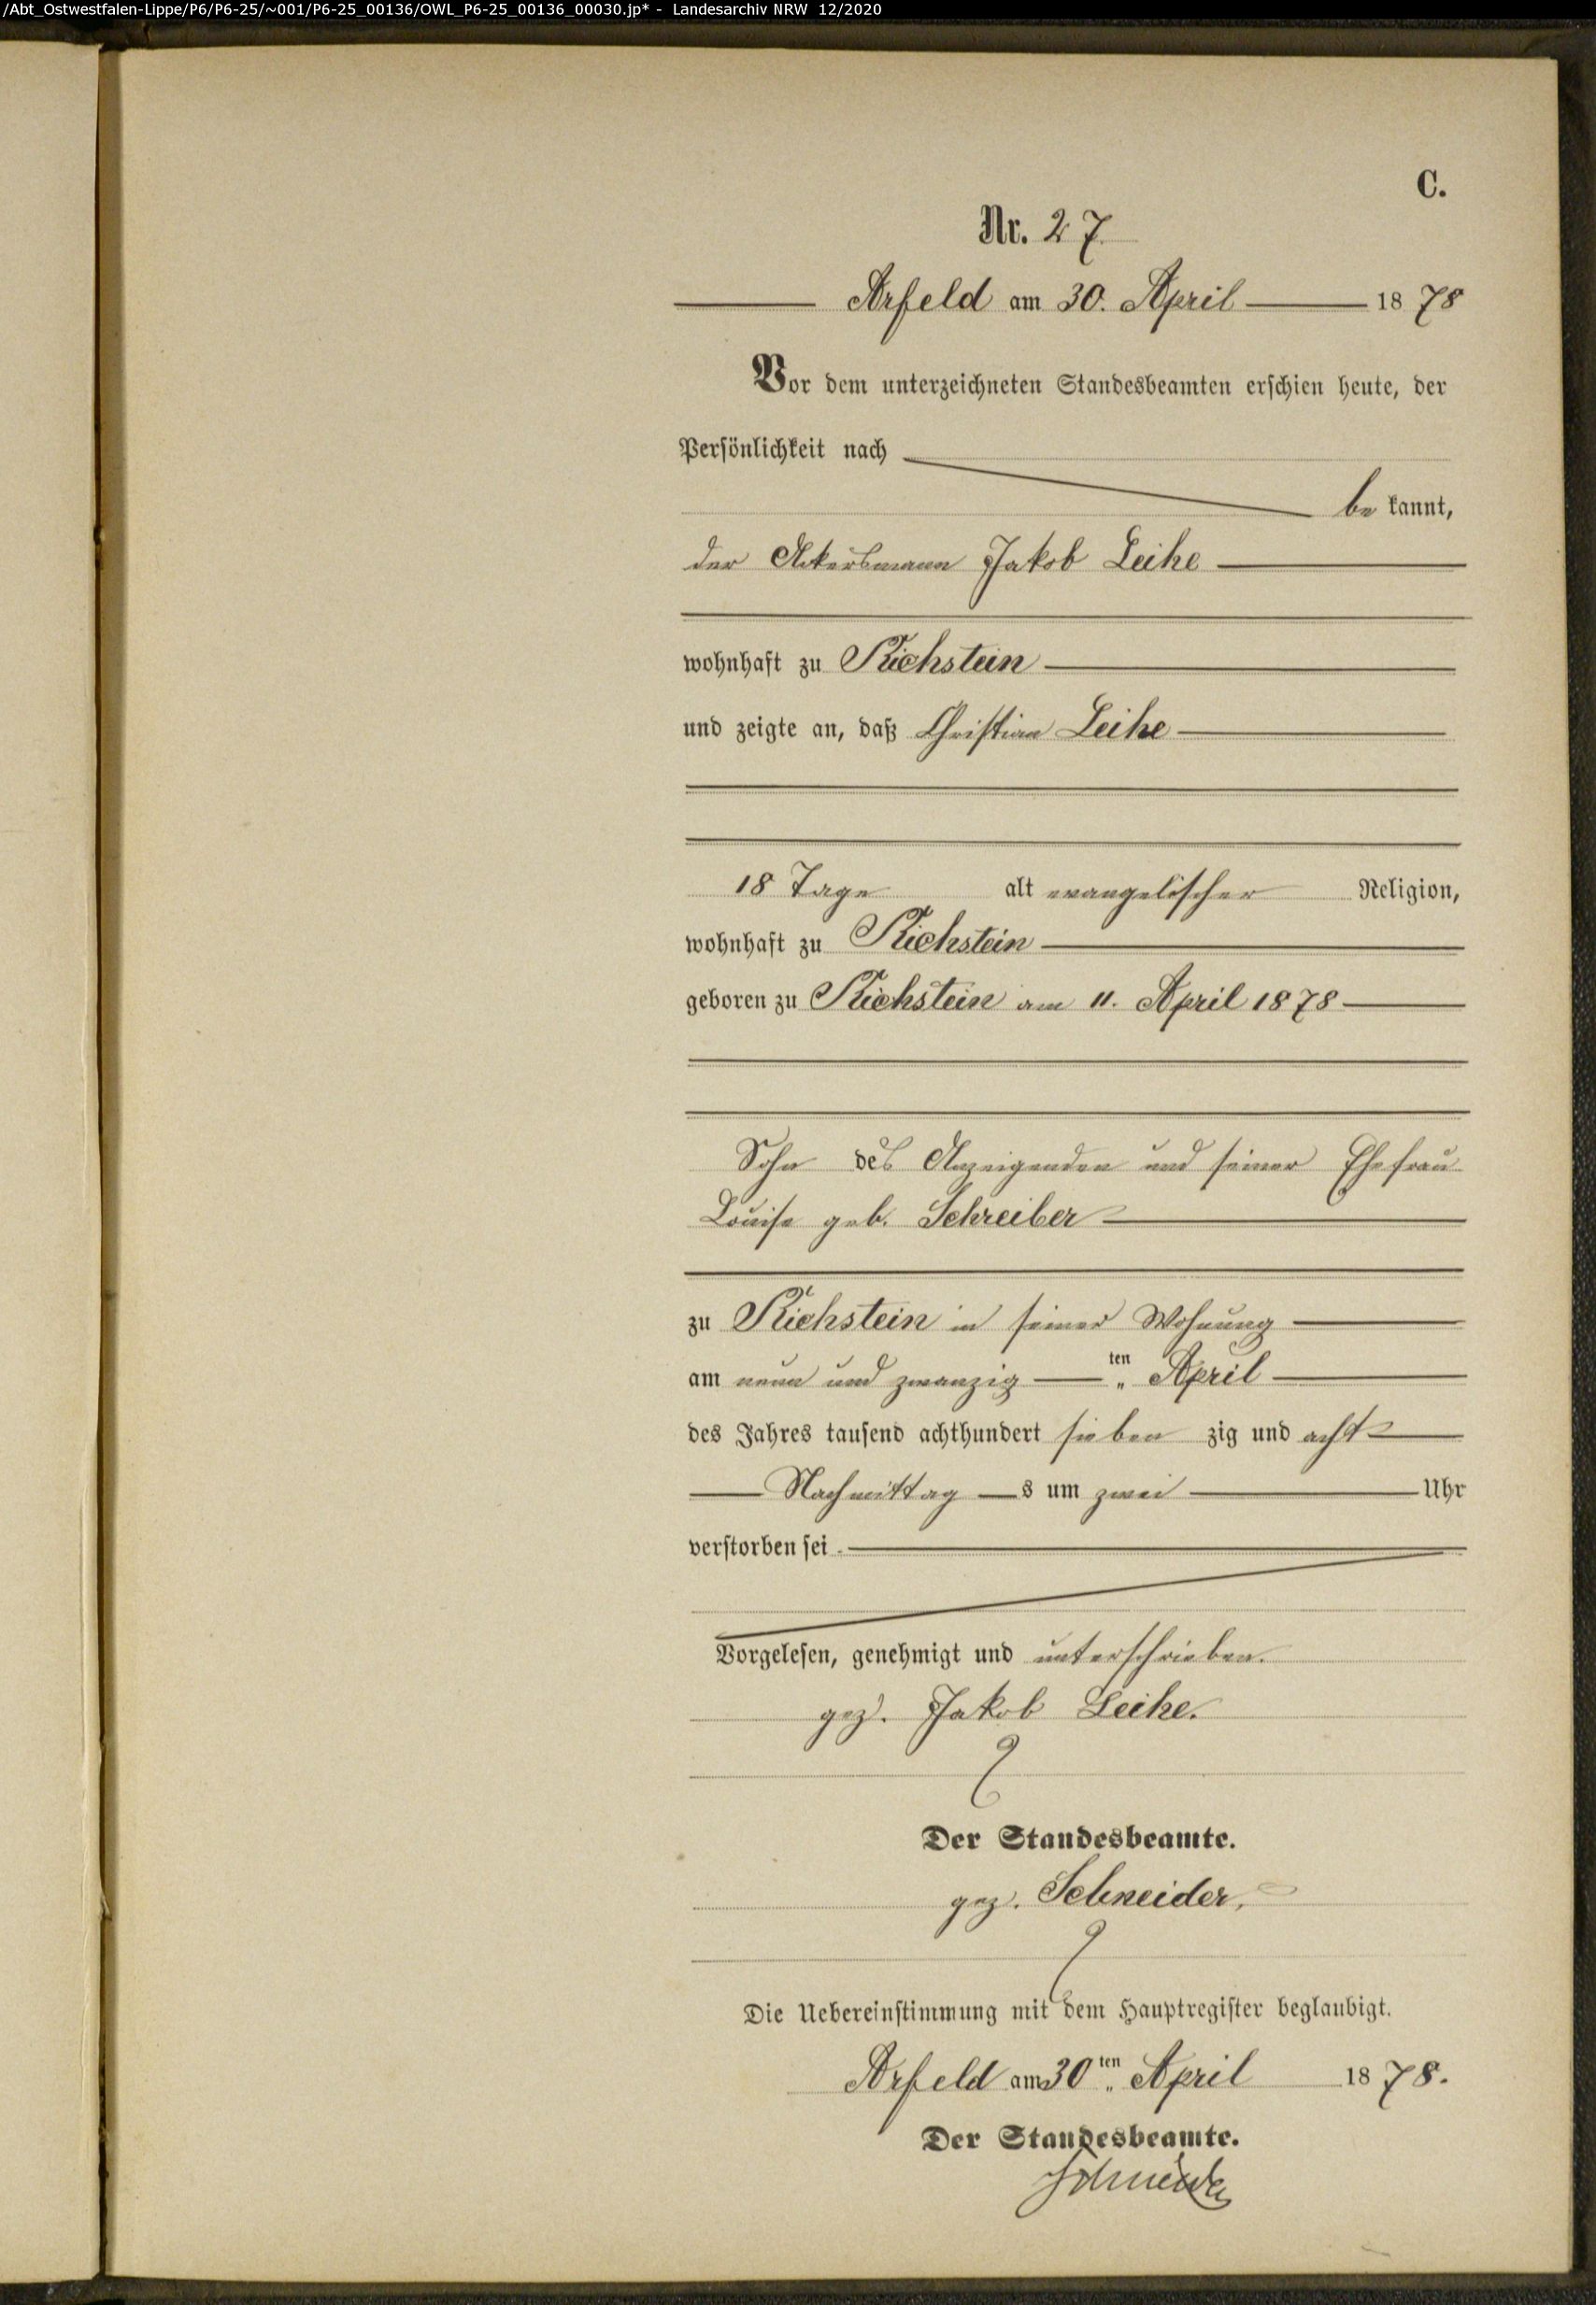 /Abt_Ostwestfalen-Lippe/P6/P6-25/~001/P6-25_00136/OWL_P6-25_00136_00030.jp* - Landesarchiv NRW 12/2020
C.
Nr. 27.
Arfeld am 30. April 1878
Vor dem unterzeichneten Standesbeamten erschien heute, der
Persönlichkeit nach
bekannt,
der Ackersmann Jakob Leihe
wohnhaft zu Richstein
und zeigte an, daß Christian Leihe
18 Tage alt evangelischer Religion,
wohnhaft zu Richstein
geboren zu Richstein am 11. April 1878
Sohn des Anzeigenden und seiner Ehefrau
Louise geb. Schreiber
zu Richstein in seiner Wohnung
am neun und zwanzig ten„ April
des Jahres tausend achthundert siebenzig und acht
Nachmittags um zwei Uhr
verstorben sei
Vorgelesen, genehmigt und unterschrieben.
gez. Jakob Leihe.
Der Standesbeamte.
gez. Schneider.
Die Uebereinstimmung mit dem Hauptregister beglaubigt.
Arfeld am 30ten„ April 1878.
Der Standesbeamte.
Schneider